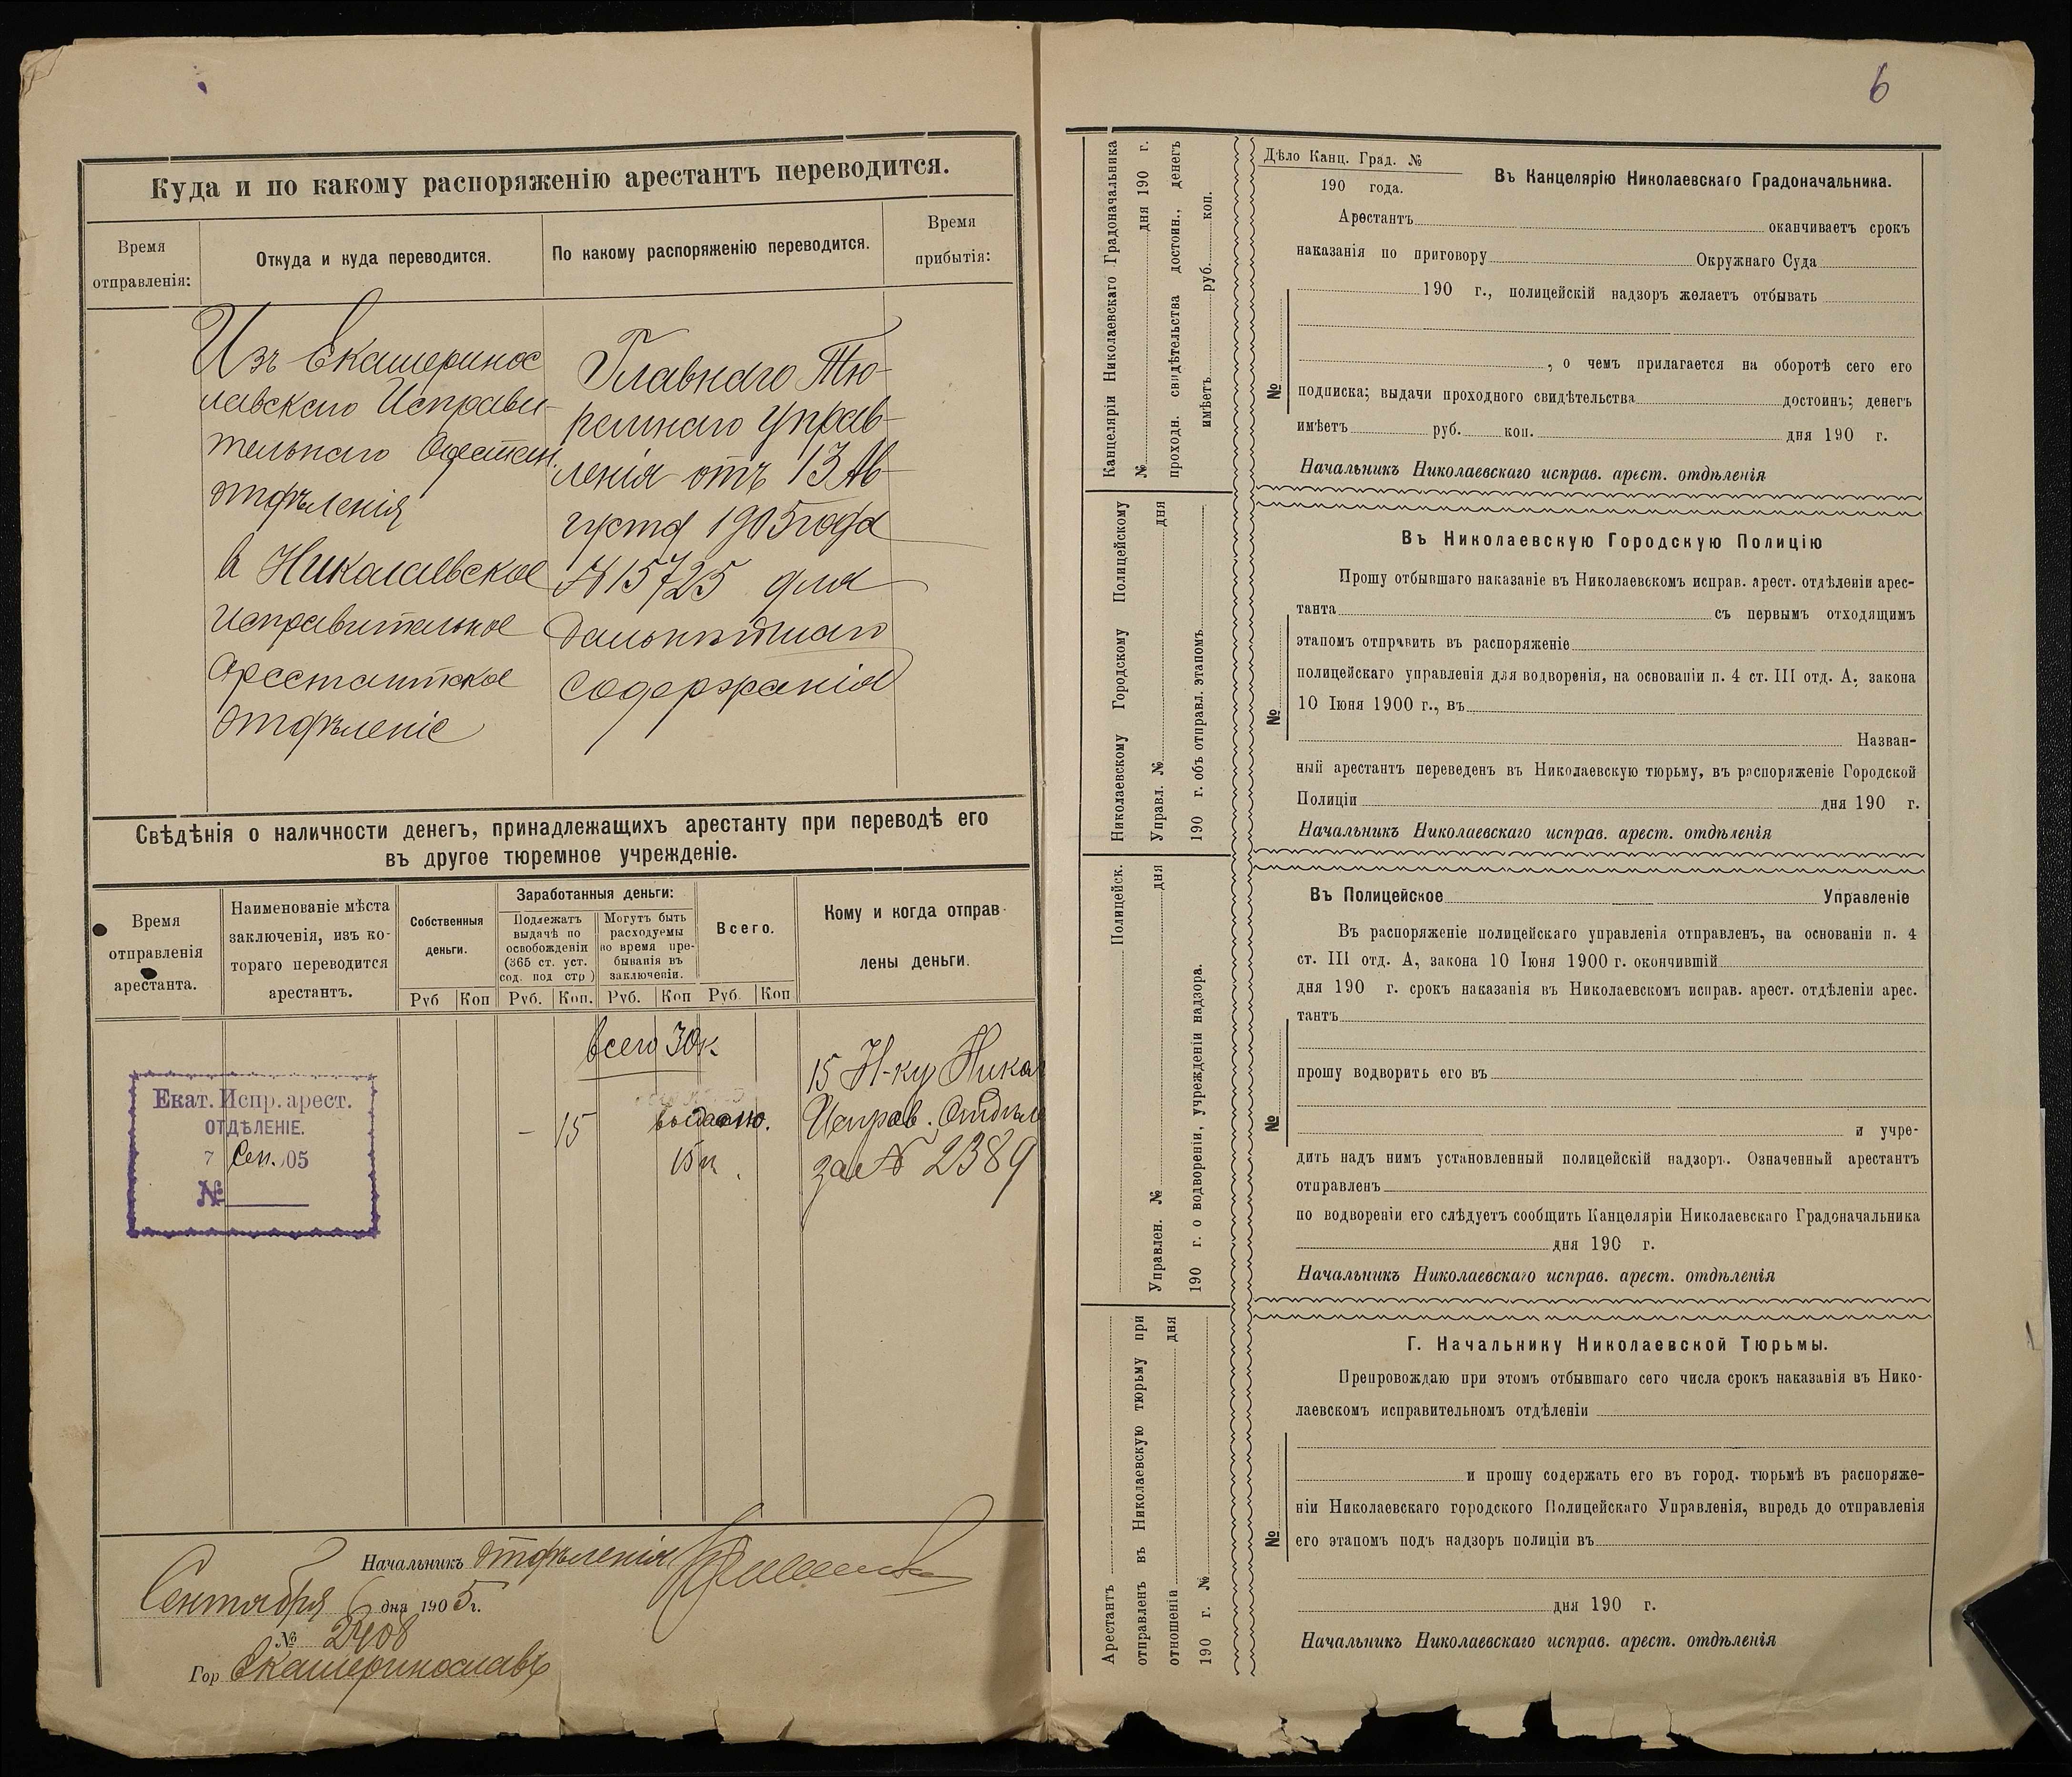 Куда и по какому распоряженію арестантъ переводится.
Время отправленія:
Откуда и куда переводится.
По какому распоряженію переводится.
Время прибытія:
Изъ Екатеринос
лавскаго Исправи-
тельнаго Арестан.
отдѣленія
в Николаевское
исправительное
арестантское
отдѣленіе
Главнаго Тю-
ремнаго Управ-
ленія отъ 13 Ав-
густа 1905 года
№ 15725 для
дальнѣйшаго
содержанія
Свѣдѣнія о наличности денегъ, принадлежащихъ арестанту при переводѣ его
въ другое тюремное учрежденіе.
Время
отправленія
арестанта.
Наименованіе мѣста
заключенія, изъ ко-
тораго переводится
арестантъ.
Собственныя
деньги.
Заработанныя деньги:
Подлежатъ
выдачѣ по
освобожденіи
(365 ст. уст.
сод. под стр)
Могутъ быть
расходуемы
во время пре-
быванія въ
заключеніи.
Всего.
Кому и когда отправ-
лены деньги.
Руб Коп Руб. Коп. Руб. Коп Руб. Коп
всего 30 к.
– 15
выдано.
15 к.
15 Н-ку Никол
Исправ. Отдѣл
за № 2389
Екат. Испр. арест.
ОТДѢЛЕНІЕ.
7 Сен. 05
№
Начальникъ отдѣленія
Сентября 6 дня 1905 г.
№ 2408
Гор Екатеринославъ
6
Канцеляріи Николаевскаго Градоначальника
№ дня 190 г.
проходн. свидѣтельства достоин., денегъ
имѣетъ руб. коп.
Дѣло Канц. Град. №
190 года.
Въ Канцелярію Николаевскаго Градоначальника.
Арестантъ оканчиваетъ срокъ
наказанія по приговору Окружнаго Суда
190 г., полицейскій надзоръ желаетъ отбывать
, о чемъ прилагается на оборотѣ сего его
№
подписка; выдачи проходного свидѣтельства достоинъ; денегъ
имѣетъ руб. коп. дня 190 г.
Начальникъ Николаевскаго исправ. арест. отдѣленія
Николаевскому Городскому Полицейскому
Управл. № дня
190 г. объ отправл. этапомъ
Въ Николаевскую Городскую Полицію
Прошу отбывшаго наказаніе въ Николаевскомъ исправ. арест. отдѣленіи арес-
танта съ первымъ отходящимъ
этапомъ отправить въ распоряженіе
полицейскаго управленія для водворенія, на основаніи п. 4 ст. III отд. А, закона
№
10 Іюня 1900 г., въ
Назван-
ный арестантъ переведенъ въ Николаевскую тюрьму, въ распоряженіе Городской
Полиціи дня 190 г.
Начальникъ Николаевскаго исправ. арест. отдѣленія
Полицейск.
Управлен. № дня
190 г. о водвореніи, учрежденіи надзора.
Въ Полицейское Управленіе
Въ распоряженіе полицейскаго управленія отправленъ, на основаніи п. 4
ст. III отд. А, закона 10 Іюня 1900 г. окончившій
дня 190 г. срокъ наказанія въ Николаевскомъ исправ. арест. отдѣленіи арес.
тантъ
прошу водворить его въ
№
и учре-
дить надъ нимъ установленный полицейскій надзоръ. Означенный арестантъ
отправленъ
по водвореніи его слѣдуетъ сообщить Канцеляріи Николаевскаго Градоначальника
дня 190 г.
Начальникъ Николаевскаго исправ. арест. отдѣленія
Арестантъ
отправленъ въ Николаевскую тюрьму при
отношеніи дня
190 г. №
Г. Начальнику Николаевской Тюрьмы.
Препровождаю при этомъ отбывшаго сего числа срокъ наказанія въ Нико-
лаевскомъ исправительномъ отдѣленіи
и прошу содержать его въ город. тюрьмѣ въ распоряже-
ніи Николаевскаго городского Полицейскаго Управленія, впредь до отправленія
№
его этапомъ подъ надзоръ полиціи въ
дня 190 г.
Начальникъ Николаевскаго исправ. арест. отдѣленія